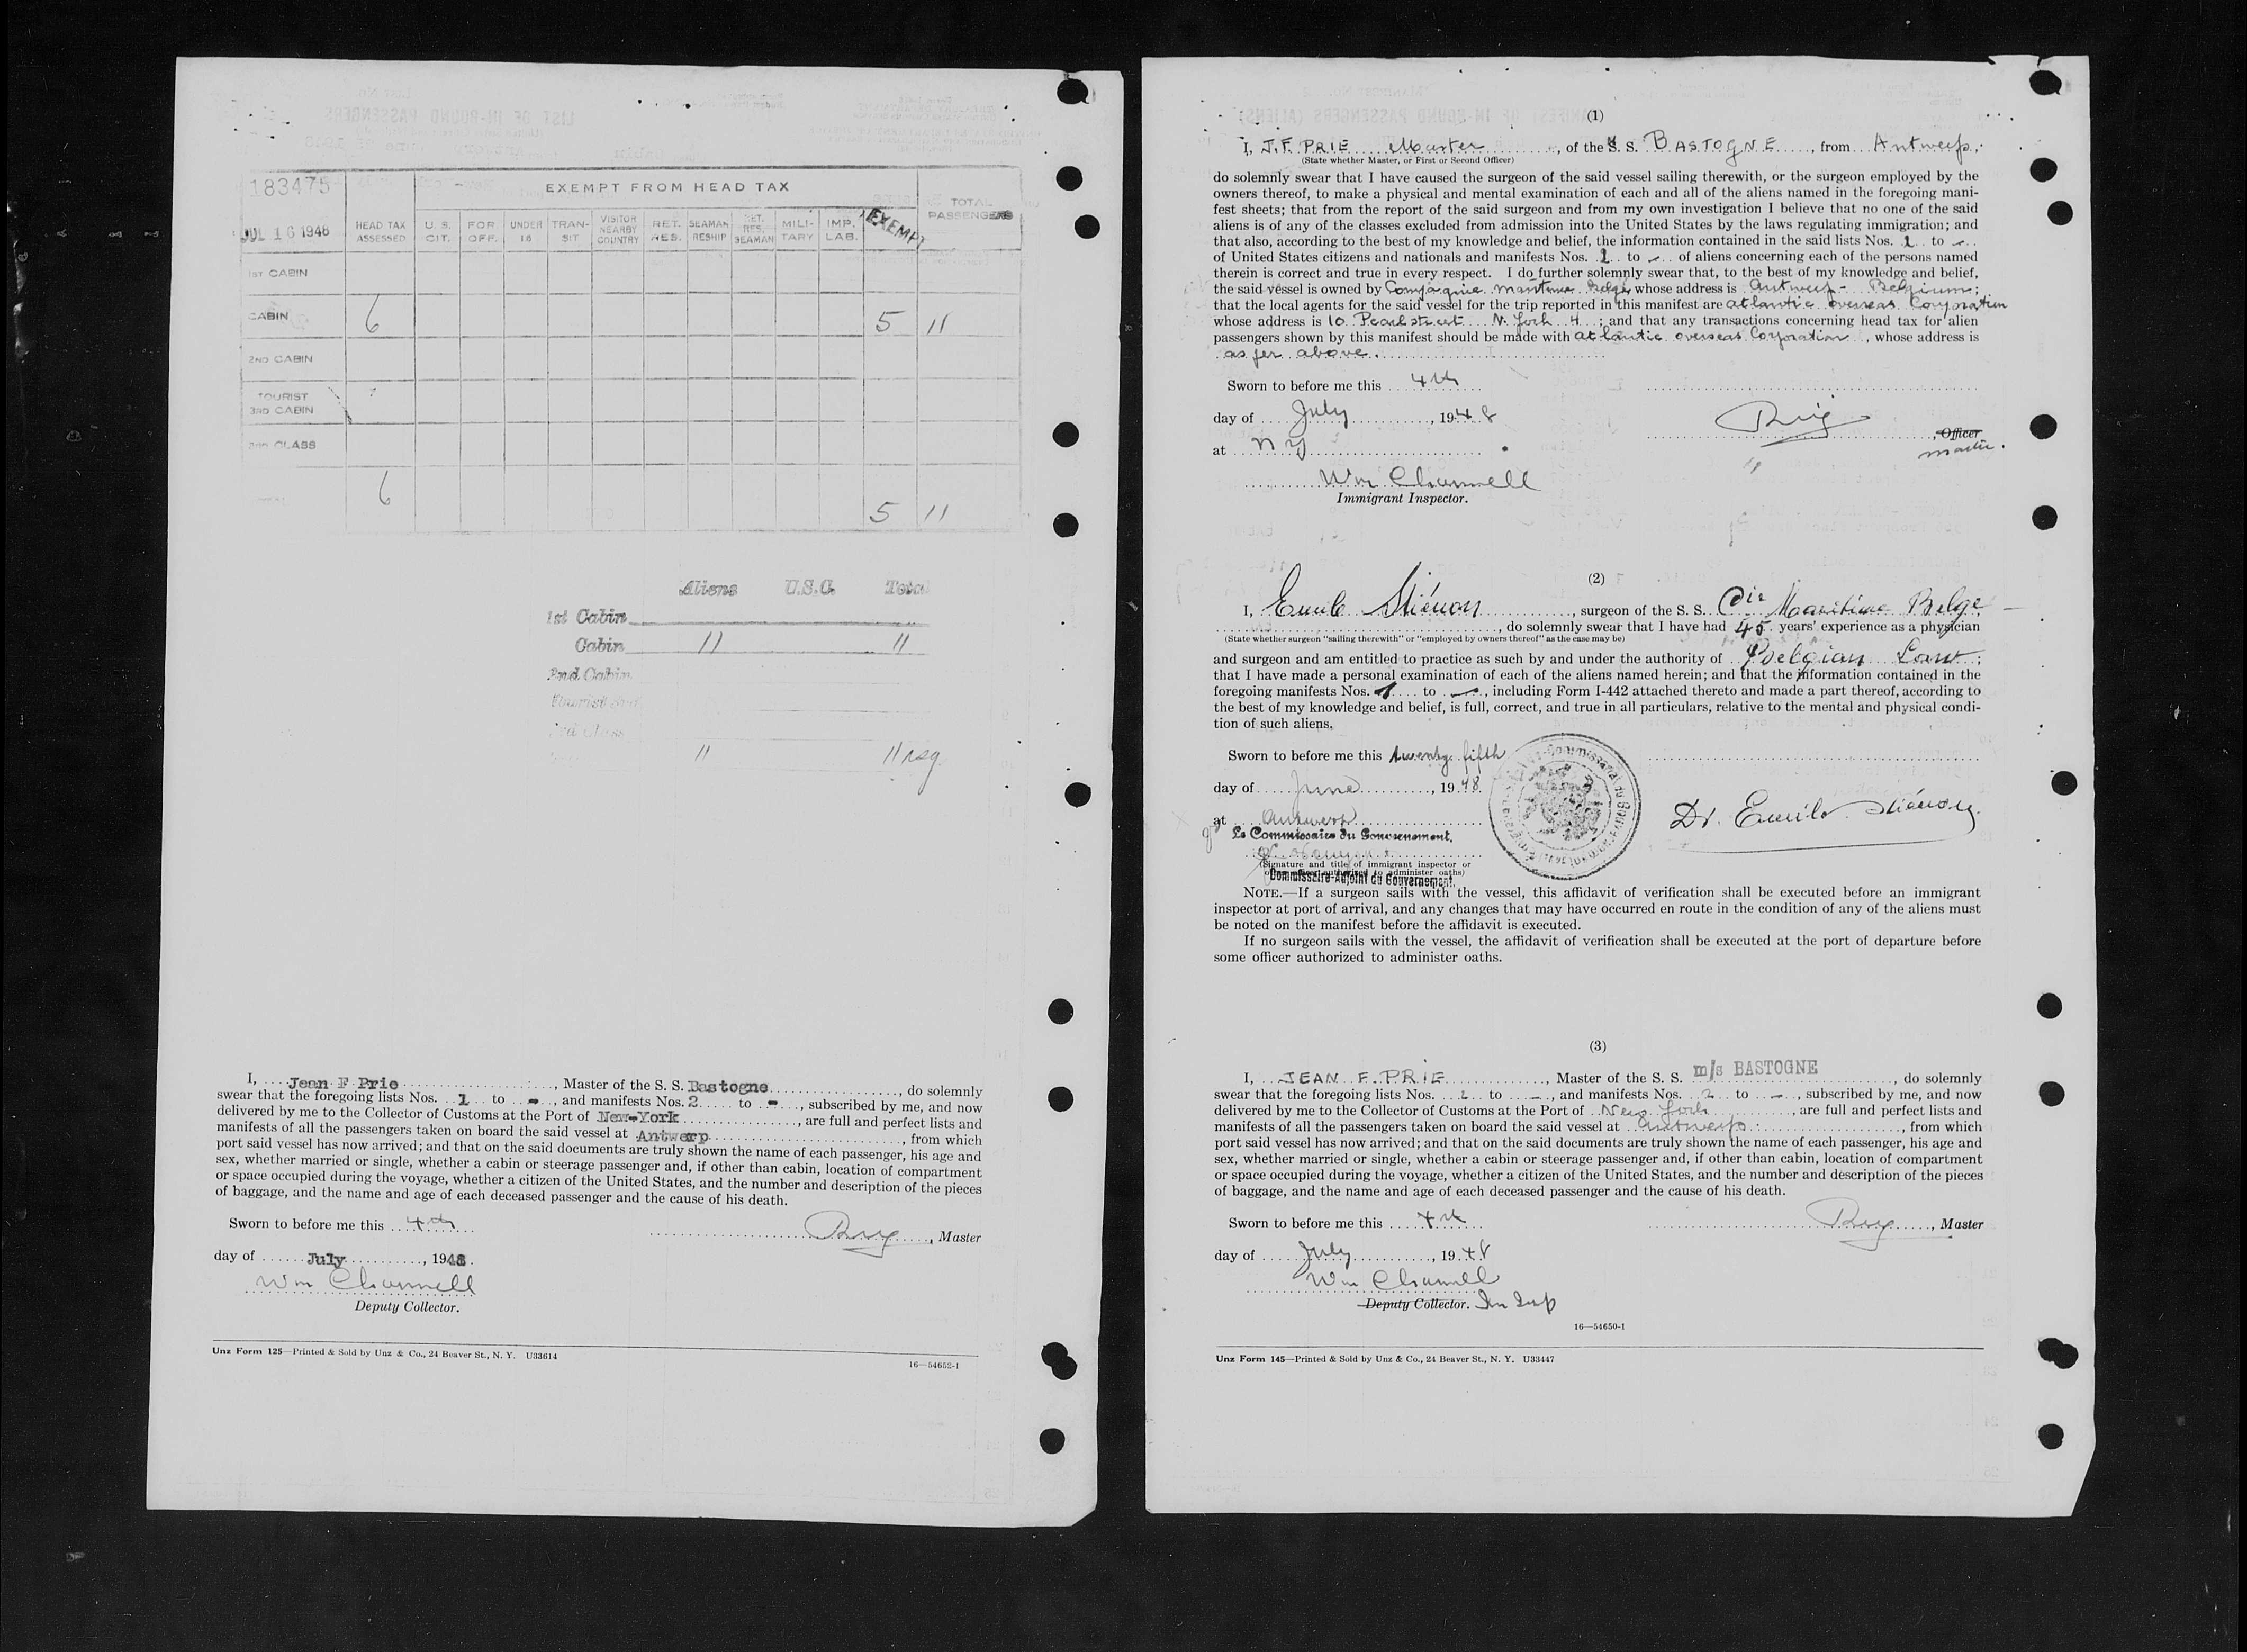 183475
JUL 16 1948
HEAD TAX ASSESSED
EXEMPT FROM HEAD TAX
U. S. CIT.
FOR OFF.
UNDER 16
TRAN-SIT
VISITOR NEARBY COUNTRY
RET. RES.
SEAMAN RESHIP
RET. RES. SEAMAN
MILI-TARY
IMP. LAB.
EXEMPT
TOTAL PASSENGERS
1ST CABIN
CABIN 6 5 11
2ND CABIN
TOURIST
3RD CABIN
CLASS
6 5 11
Aliens U.S.C. Total
1st Cabin
Cabin 11 11
2nd Cabin
3rd Class
11 11
I, Jean F Prie, Master of the S. S. Bastogne, do solemnly
swear that the foregoing lists Nos. 1 to -, and manifests Nos. 2 to -, subscribed by me, and now
delivered by me to the Collector of Customs at the Port of New-York, are full and perfect lists and
manifests of all the passengers taken on board the said vessel at Antwerp, from which
port said vessel has now arrived; and that on the said documents are truly shown the name of each passenger, his age and
sex, whether married or single, whether a cabin or steerage passenger and, if other than cabin, location of compartment
or space occupied during the voyage, whether a citizen of the United States, and the number and description of the pieces
of baggage, and the name and age of each deceased passenger and the cause of his death.
Sworn to before me this 4th
, Master
day of July, 1948.
Wm Channell
Deputy Collector.
Unz Form 125—Printed & Sold by Unz & Co., 24 Beaver St., N. Y. U33614
16—54652-1
(1)
I, J. F. PRIE Master, of the S. S. BASTOGNE, from Antwerp,
(State whether Master, or First or Second Officer)
do solemnly swear that I have caused the surgeon of the said vessel sailing therewith, or the surgeon employed by the
owners thereof, to make a physical and mental examination of each and all of the aliens named in the foregoing mani-
fest sheets; that from the report of the said surgeon and from my own investigation I believe that no one of the said
aliens is of any of the classes excluded from admission into the United States by the laws regulating immigration; and
that also, according to the best of my knowledge and belief, the information contained in the said lists Nos. 1 to -
of United States citizens and nationals and manifests Nos. 2 to - of aliens concerning each of the persons named
therein is correct and true in every respect. I do further solemnly swear that, to the best of my knowledge and belief,
the said vessel is owned by Compagnie maritime Belge whose address is Antwerp - Belgium;
that the local agents for the said vessel for the trip reported in this manifest are atlantic overseas Corporation
whose address is 10 Pearl street N. York 4; and that any transactions concerning head tax for alien
passengers shown by this manifest should be made with atlantic overseas Corporation, whose address is
as per above.
Sworn to before me this 4th
day of July, 1948
, Officer
master.
at N Y
Wm Channell
Immigrant Inspector.
(2)
I, Emile Stiénon, surgeon of the S. S. Cie Maritime Belge
, do solemnly swear that I have had 45 years' experience as a physician
(State whether surgeon "sailing therewith" or "employed by owners thereof" as the case may be)
and surgeon and am entitled to practice as such by and under the authority of Belgian Law;
that I have made a personal examination of each of the aliens named herein; and that the information contained in the
foregoing manifests Nos. 1 to -, including Form I-442 attached thereto and made a part thereof, according to
the best of my knowledge and belief, is full, correct, and true in all particulars, relative to the mental and physical condi-
tion of such aliens.
Sworn to before me this twenty fifth
day of June, 1948.
at Antwerp
Dr. Emile Stiénon
Le Commissaire du Gouvernement.
(Signature and title of immigrant inspector or
officer authorized to administer oaths)
Commissaire-Adjoint du Gouvernement.
NOTE.—If a surgeon sails with the vessel, this affidavit of verification shall be executed before an immigrant
inspector at port of arrival, and any changes that may have occurred en route in the condition of any of the aliens must
be noted on the manifest before the affidavit is executed.
If no surgeon sails with the vessel, the affidavit of verification shall be executed at the port of departure before
some officer authorized to administer oaths.
(3)
I, JEAN F. PRIE, Master of the S. S. m/s BASTOGNE, do solemnly
swear that the foregoing lists Nos. 1 to -, and manifests Nos. 2 to -, subscribed by me, and now
delivered by me to the Collector of Customs at the Port of New York, are full and perfect lists and
manifests of all the passengers taken on board the said vessel at Antwerp, from which
port said vessel has now arrived; and that on the said documents are truly shown the name of each passenger, his age and
sex, whether married or single, whether a cabin or steerage passenger and, if other than cabin, location of compartment
or space occupied during the voyage, whether a citizen of the United States, and the number and description of the pieces
of baggage, and the name and age of each deceased passenger and the cause of his death.
Sworn to before me this 4th
, Master
day of July, 1948
Wm Channell
Deputy Collector. Im Insp
16—54650-1
Unz Form 145—Printed & Sold by Unz & Co., 24 Beaver St., N. Y. U33447